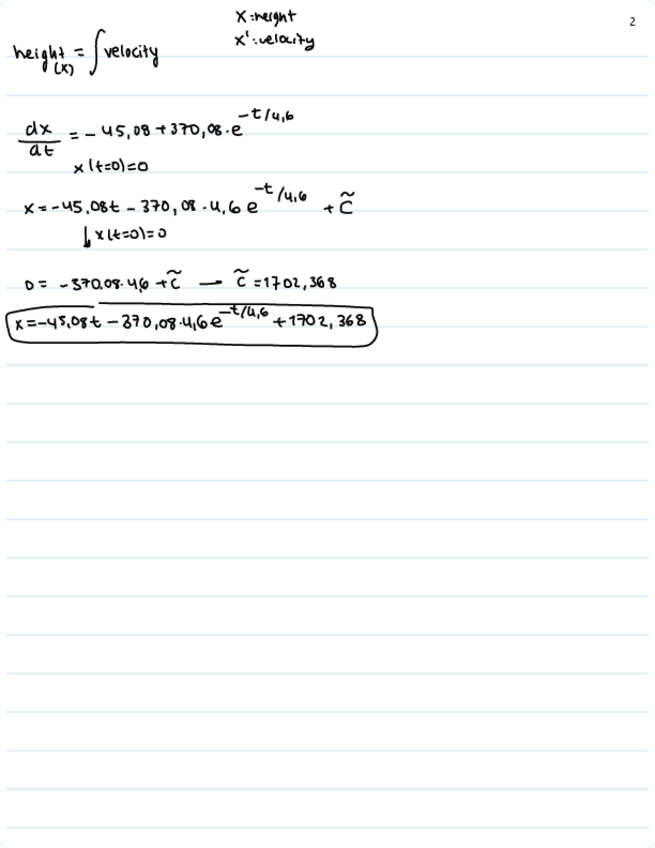 x:height
2
x':velocity
height = ∫velocity
(x)
dx/dt = -45,08+370,08·e^{-t/4,6}
x(t=0)=0
x=-45,08t-370,08·4,6e^{-t/4,6} + C̃
↳ x(t=0)=0
0= -370,08·4,6+C̃ — C̃=1702,368
x=-45,08t-370,08·4,6e^{-t/4,6}+1702,368